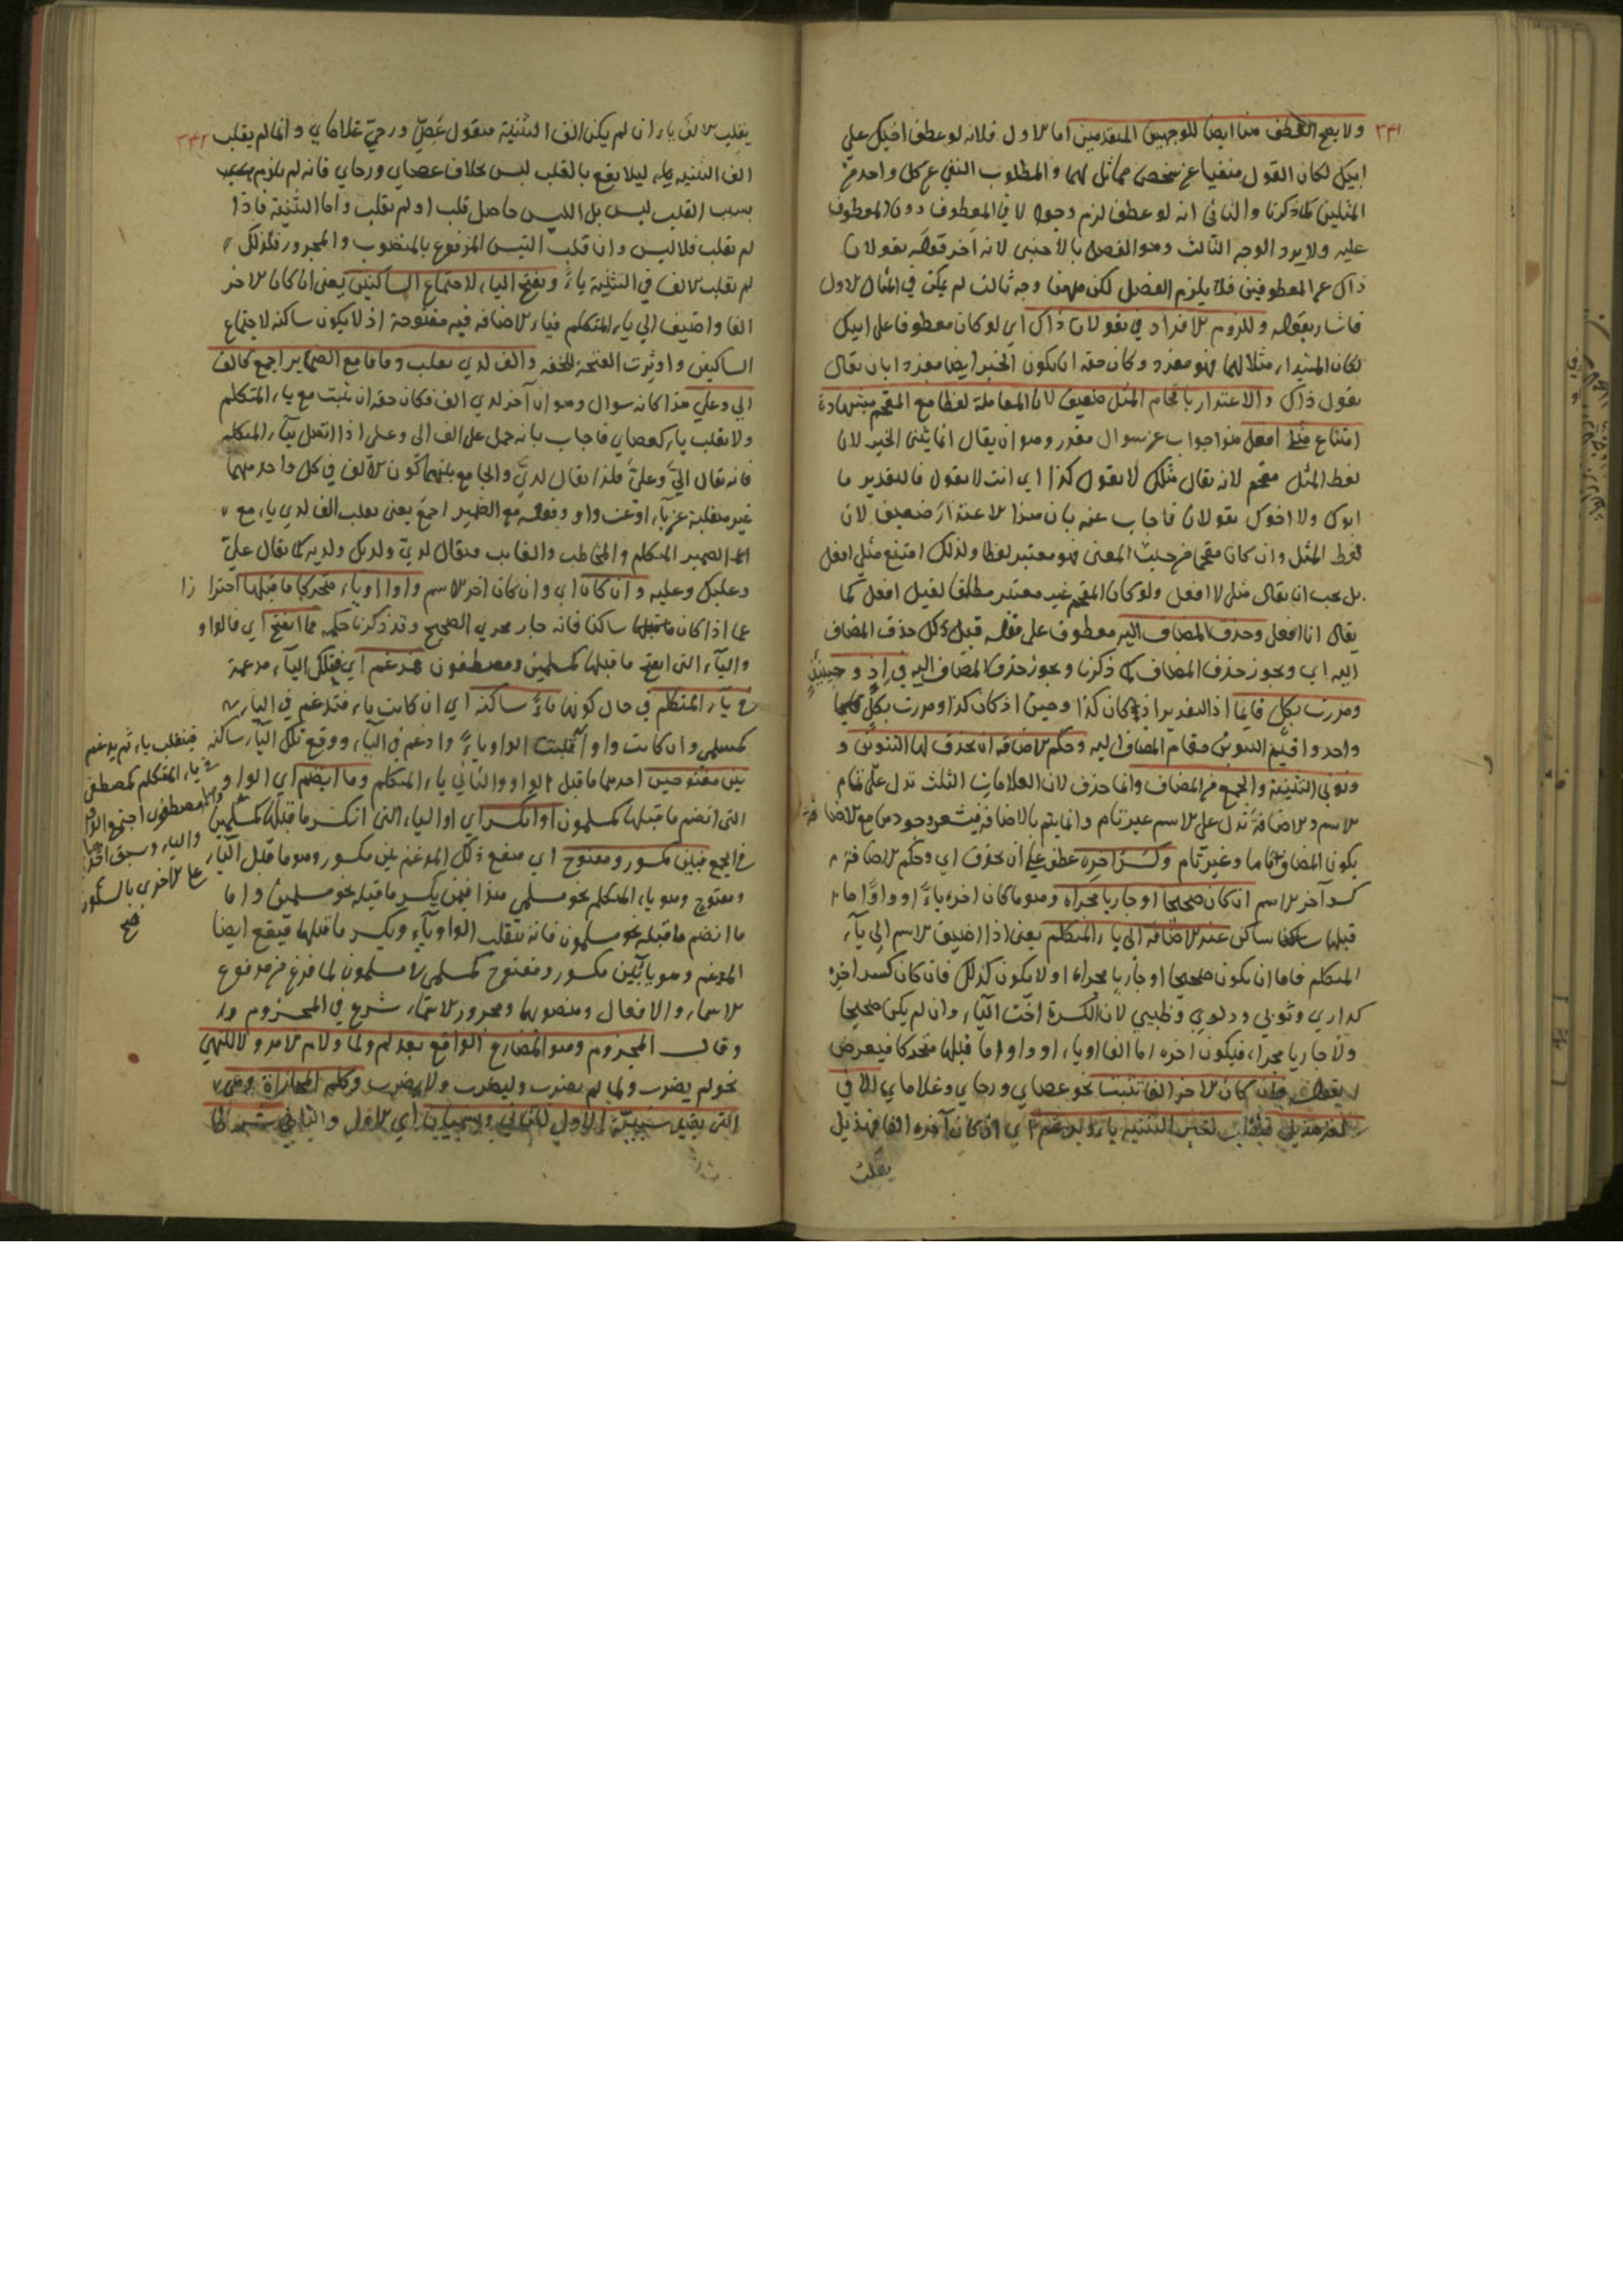 ٢٣١
ولا يصح العطف هنا ايضا للوجهين المتقدمين اما الاول فلانه لو عطف اخيك على
ابيك لكان القول منفيا عن شخص مماثل لهما والمطلوب النفي عن كل واحد من
المثلين كما ذكرنا والثاني انه لو عطف لزم وجود لا في المعطوف دون المعطوف
عليه ولا يرد الوجه الثالث وهو الفصل بالاجنبي لانه آخر قوله يقولان
ذاك عن المعطوفين فلا يلزم الفصل لكن ههنا وجه ثالث لم يكن في المثال الاول
فاشار بقوله وللزوم الافراد في يقولان ذاك اي لو كان معطوفا على ابيك
لكان المبتدا مثلا لهما فهو مفرد وكان حقه ان يكون الخبر ايضا مفردا بان يقال
يقول ذاك والاعتذار باقحام المثل ضعيف لان المعاملة لفظا مع المقحم بشهادة
امتناع مثلي افعل هذا جواب عن سوال مقدر وهو ان يقال انما يثنى الخبر لان
لفظ المثل مقحم لانه يقال مثلك لا يقول كذا اي انت لا يقول فالتقدير ما
ابوك ولا اخوك يقولان فاجاب عنه بان هذا الاعتذار ضعيف لان
لفظ المثل وان كان مقحما من حيث المعنى فهو معتبر لفظا ولذلك امتنع مثلي افعل
بل يجب ان يقال مثلي لا افعل ولو كان المقحم غير معتبر مطلقا لقيل افعل كما
يقال انا افعل وحذف المضاف اليه معطوف على قوله قبل ذلك حذف المضاف
اليه اي ويجوز حذف المضاف كما ذكرنا ويجوز حذف المضاف اليه في اذ وحينئذ
ومررت بكل قايما اذ التقدير اذ كان كذا وحين اذ كان كذا ومررت بكل
واحد واقيم التنوين مقام المضاف اليه وحكم الاضافة ان يحذف لها التنوين و
ونوني التثنية والجمع من المضاف وانما حذف لان العلامات الثلث تدل على تمام
الاسم والاضافة تدل على الاسم غير تام وانما يتم بالاضافة
يكون المضاف تاما وغير تام وكسر آخره عطف على ان يحذف اي وحكم الاضافة
كسر آخر الاسم ان كان صحيحا او جاريا مجراه وهو ما كان اخره ياء او واوا ما
قبلها ساكن عند الاضافة الى ياء المتكلم يعني اذا اضيف الاسم الى ياء
المتكلم فاما ان يكون صحيحا او جاريا مجراه او لا يكون كذلك فان كان كسر اخره
كداري وثوبي ودلوي وظبيي لان الكسرة اخت الياء وان لم يكن صحيحا
ولا جاريا مجراه فيكون اخره اما الفا او ياء او واوا ما قبلها متحركا فيعرض
كان الاخر الفا تثبت نحو عصاي ورحاي وغلاماي الا في
لغة هذيل لغير التثنية ياء ويدغم اي ان كان آخره الفا فهذيل
يقلب
٢٣٢
يقلب الالف ياء ان لم يكن الف التثنية فيقول عصي ورحي غلاماي وانما لم يقلب
الف التثنية ياء ليلا يقع بالقلب لبس بخلاف عصاي ورحاي فانه لم يلزم
بسبب القلب لبس بل اللبس حاصل قلب او لم يقلب واما التثنية فاذا
لم يقلب فلا لبس وان قلب التبس المرفوع بالمنصوب والمجرور فلذلك
لم يقلب الالف في التثنية ياء ويفتح الياء لاجتماع الساكنين يعني ان كان الاخر
الفا واضيف الى ياء المتكلم فياء الاضافة فيه مفتوحة اذ لا يكون ساكنة لاجتماع
الساكنين واوثرت الفتحة للخفة والف لدي يقلب وفاقا مع الضماير اجمع كالف
الى وعلى هذا كانه سوال وهو ان آخر لدي الف فكان حقه ان يثبت مع ياء المتكلم
ولا يقلب ياء كعصاي فاجاب بانه حمل على الف الى وعلى اذا اتصل بياء المتكلم
فانه يقال الي وعلي فلذا يقال لدي والجامع بينهما كون الالف في كل واحد منهما
غير منقلبة عن ياء او عن واو وقوله مع الضمير اجمع يعني يقلب الف لدي ياء مع
الضمير المتكلم والمخاطب والغايب فيقال لدي ولديك ولديه كما يقال علي
وعليك وعليه وان كان اي وان كان اخر الاسم واوا او ياء متحركا ما قبلها احترازا
عما اذا كان ما قبلها ساكنا فانه جار مجرى الصحيح وقد ذكرنا حكمه فما انفتح اي فالواو
والياء التي انفتح ما قبلها كمسلمين ومصطفون مدغم اي فتلك الياء مدغمة
في ياء المتكلم في حال كونها ياء ساكنة اي ان كانت ياء فتدغم في الياء
كمسلمي وان كانت واوا قلبت الواو ياء وادغم في الياء ووقع تلك الياء ساكنة
بين مفتوحين احدهما ما قبل الواو والثاني ياء المتكلم وما انضم اي الواو
التي انضم ما قبلها كمسلمون او انكسر اي او الياء التي انكسر ما قبلها كمسلمين
في الجمع فبين مكسور ومفتوح اي فيقع ذلك المدغم بين مكسور وهو ما قبل الياء
ومفتوح وهو ياء المتكلم نحو مسلمي هذا فيمن يكسر ما قبله نحو مسلمين واما
ما انضم ما قبله نحو مسلمون فانه يقلب الواو ياء ويكسر ما قبلها فيقع ايضا
المدغم وهو يا بين مكسور ومفتوح كمسلمي لا مسلمون لما فرغ من مرفوع
الاسماء والافعال ومنصوبها ومجرور الاسماء شرع في المجزوم
وقال المجزوم وهو المضارع الواقع بعد لم ولما ولام الامر ولا للنهي
نحو لم يضرب ولما يضرب وليضرب ولا يضرب وكلم المجازاة وهي
التي يفيد سببية الاول للثاني ويسميان اي الاول والثاني شرطا
فينقلب ياء ثم يدغم
في ياء المتكلم كمصطفي
المصطفون اجتمع الواو
والياء وسبق احدهما
على الاخرى بالسكون
صح